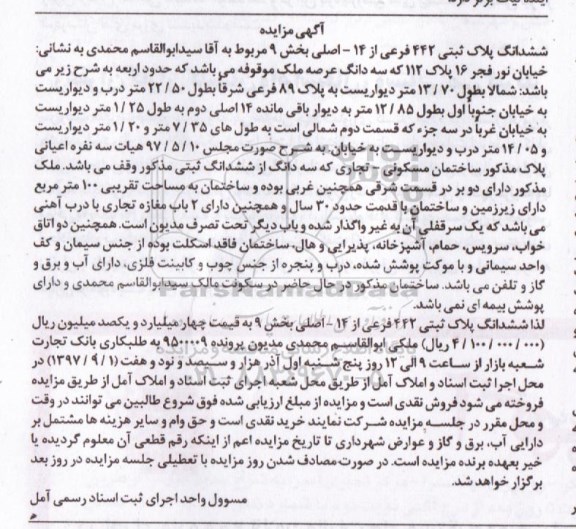 آگهی مزایده
ششدانگ پلاک ثبتی ۴۴۲ فرعی از ۱۴ - اصلی بخش ۹ مربوط به آقا سیدابوالقاسم محمدی به نشانی:
خیابان نور فجر ۱۶ پلاک ۱۱۲ که سه دانگ عرصه ملک موقوفه می باشد که حدود اربعه به شرح زیر می
باشد: شمالا بطول ۷۰ / ۱۳ متر دیواریست به پلاک ۸۹ فرعی شرقاً بطول ۵۰ / ۲۲ متر درب و دیواریست
به خیابان جنوباً اول بطول ۸۵ / ۱۲ متر به دیوار باقی مانده ۱۴ اصلی دوم به طول ۲۵ / ۱ متر دیواریست
به خیابان غرباً در سه جزء که قسمت دوم شمالی است به طول های ۳۵ / ۷ متر و ۲۰ / ۱ متر دیواریست
و ۰۵ / ۱۴ متر درب و دیواریست به خیابان. به شرح صورت مجلس ۱۰ / ۵ / ۹۷ هیات سه نفره اعیانی
پلاک مذکور ساختمان مسکونی - تجاری که سه دانگ از ششدانگ ثبتی مذکور وقف می باشد. ملک
مذکور دارای دو بر در قسمت شرقی همچنین غربی بوده و ساختمان به مساحت تقریبی ۱۰۰ متر مربع
دارای زیرزمین و ساختمان با قدمت حدود ۳۰ سال و همچنین دارای ۲ باب مغازه تجاری با درب آهنی
می باشد که یک سرقفلی آن به غیر واگذار شده و باب دیگر تحت تصرف مدیون است. همچنین دو اتاق
خواب، سرویس، حمام، آشپزخانه، پذیرایی و هال، ساختمان فاقد اسکلت بوده از جنس سیمان و کف
واحد سیمانی و با موکت پوشش شده، درب و پنجره از جنس چوب و کابینت فلزی، دارای آب و برق و
گاز و تلفن می باشد. ساختمان مذکور در حال حاضر در سکونت مالک سیدابوالقاسم محمدی و دارای
پوشش بیمه ای نمی باشد.
لذا ششدانگ پلاک ثبتی ۴۴۲ فرعی از ۱۴ - اصلی بخش ۹ به قیمت چهار میلیارد و یکصد میلیون ریال
(۰۰۰ / ۰۰۰ / ۱۰۰ / ۴ ریال) ملکی ابوالقاسم محمدی مدیون پرونده ۹۵۰۰۰۰۹ به طلبکاری بانک تجارت
شعبه بازار از ساعت ۹ الی ۱۲ روز پنج شنبه اول آذر هزار و سیصد و نود و هفت (۱ / ۹ / ۱۳۹۷) در
محل اجرا ثبت اسناد و املاک آمل از طریق محل شعبه اجرای ثبت اسناد و املاک آمل از طریق مزایده
فروخته می شود فروش نقدی است و مزایده از مبلغ ارزیابی شده فوق شروع طالبین می توانند در وقت
و محل مقرر در جلسه مزایده شرکت نمایند خرید نقدی است و حق وام و سایر هزینه ها مشتمل بر
دارایی آب، برق و گاز و عوارض شهرداری تا تاریخ مزایده اعم از اینکه رقم قطعی آن معلوم گردیده یا
خیر بعهده برنده مزایده است. در صورت مصادف شدن روز مزایده با تعطیلی جلسه مزایده در روز بعد
برگزار خواهد شد.
مسوول واحد اجرای ثبت اسناد رسمی آمل
ParsNamadData